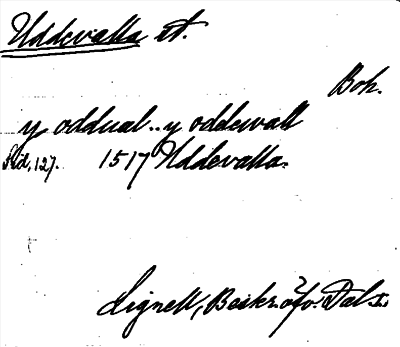 Uddevalla st.
Boh.
y oddual.. y oddewall
Sid. 127. 1517 Uddevalla.
Lignell, Beskr. öfv. Dalsl.